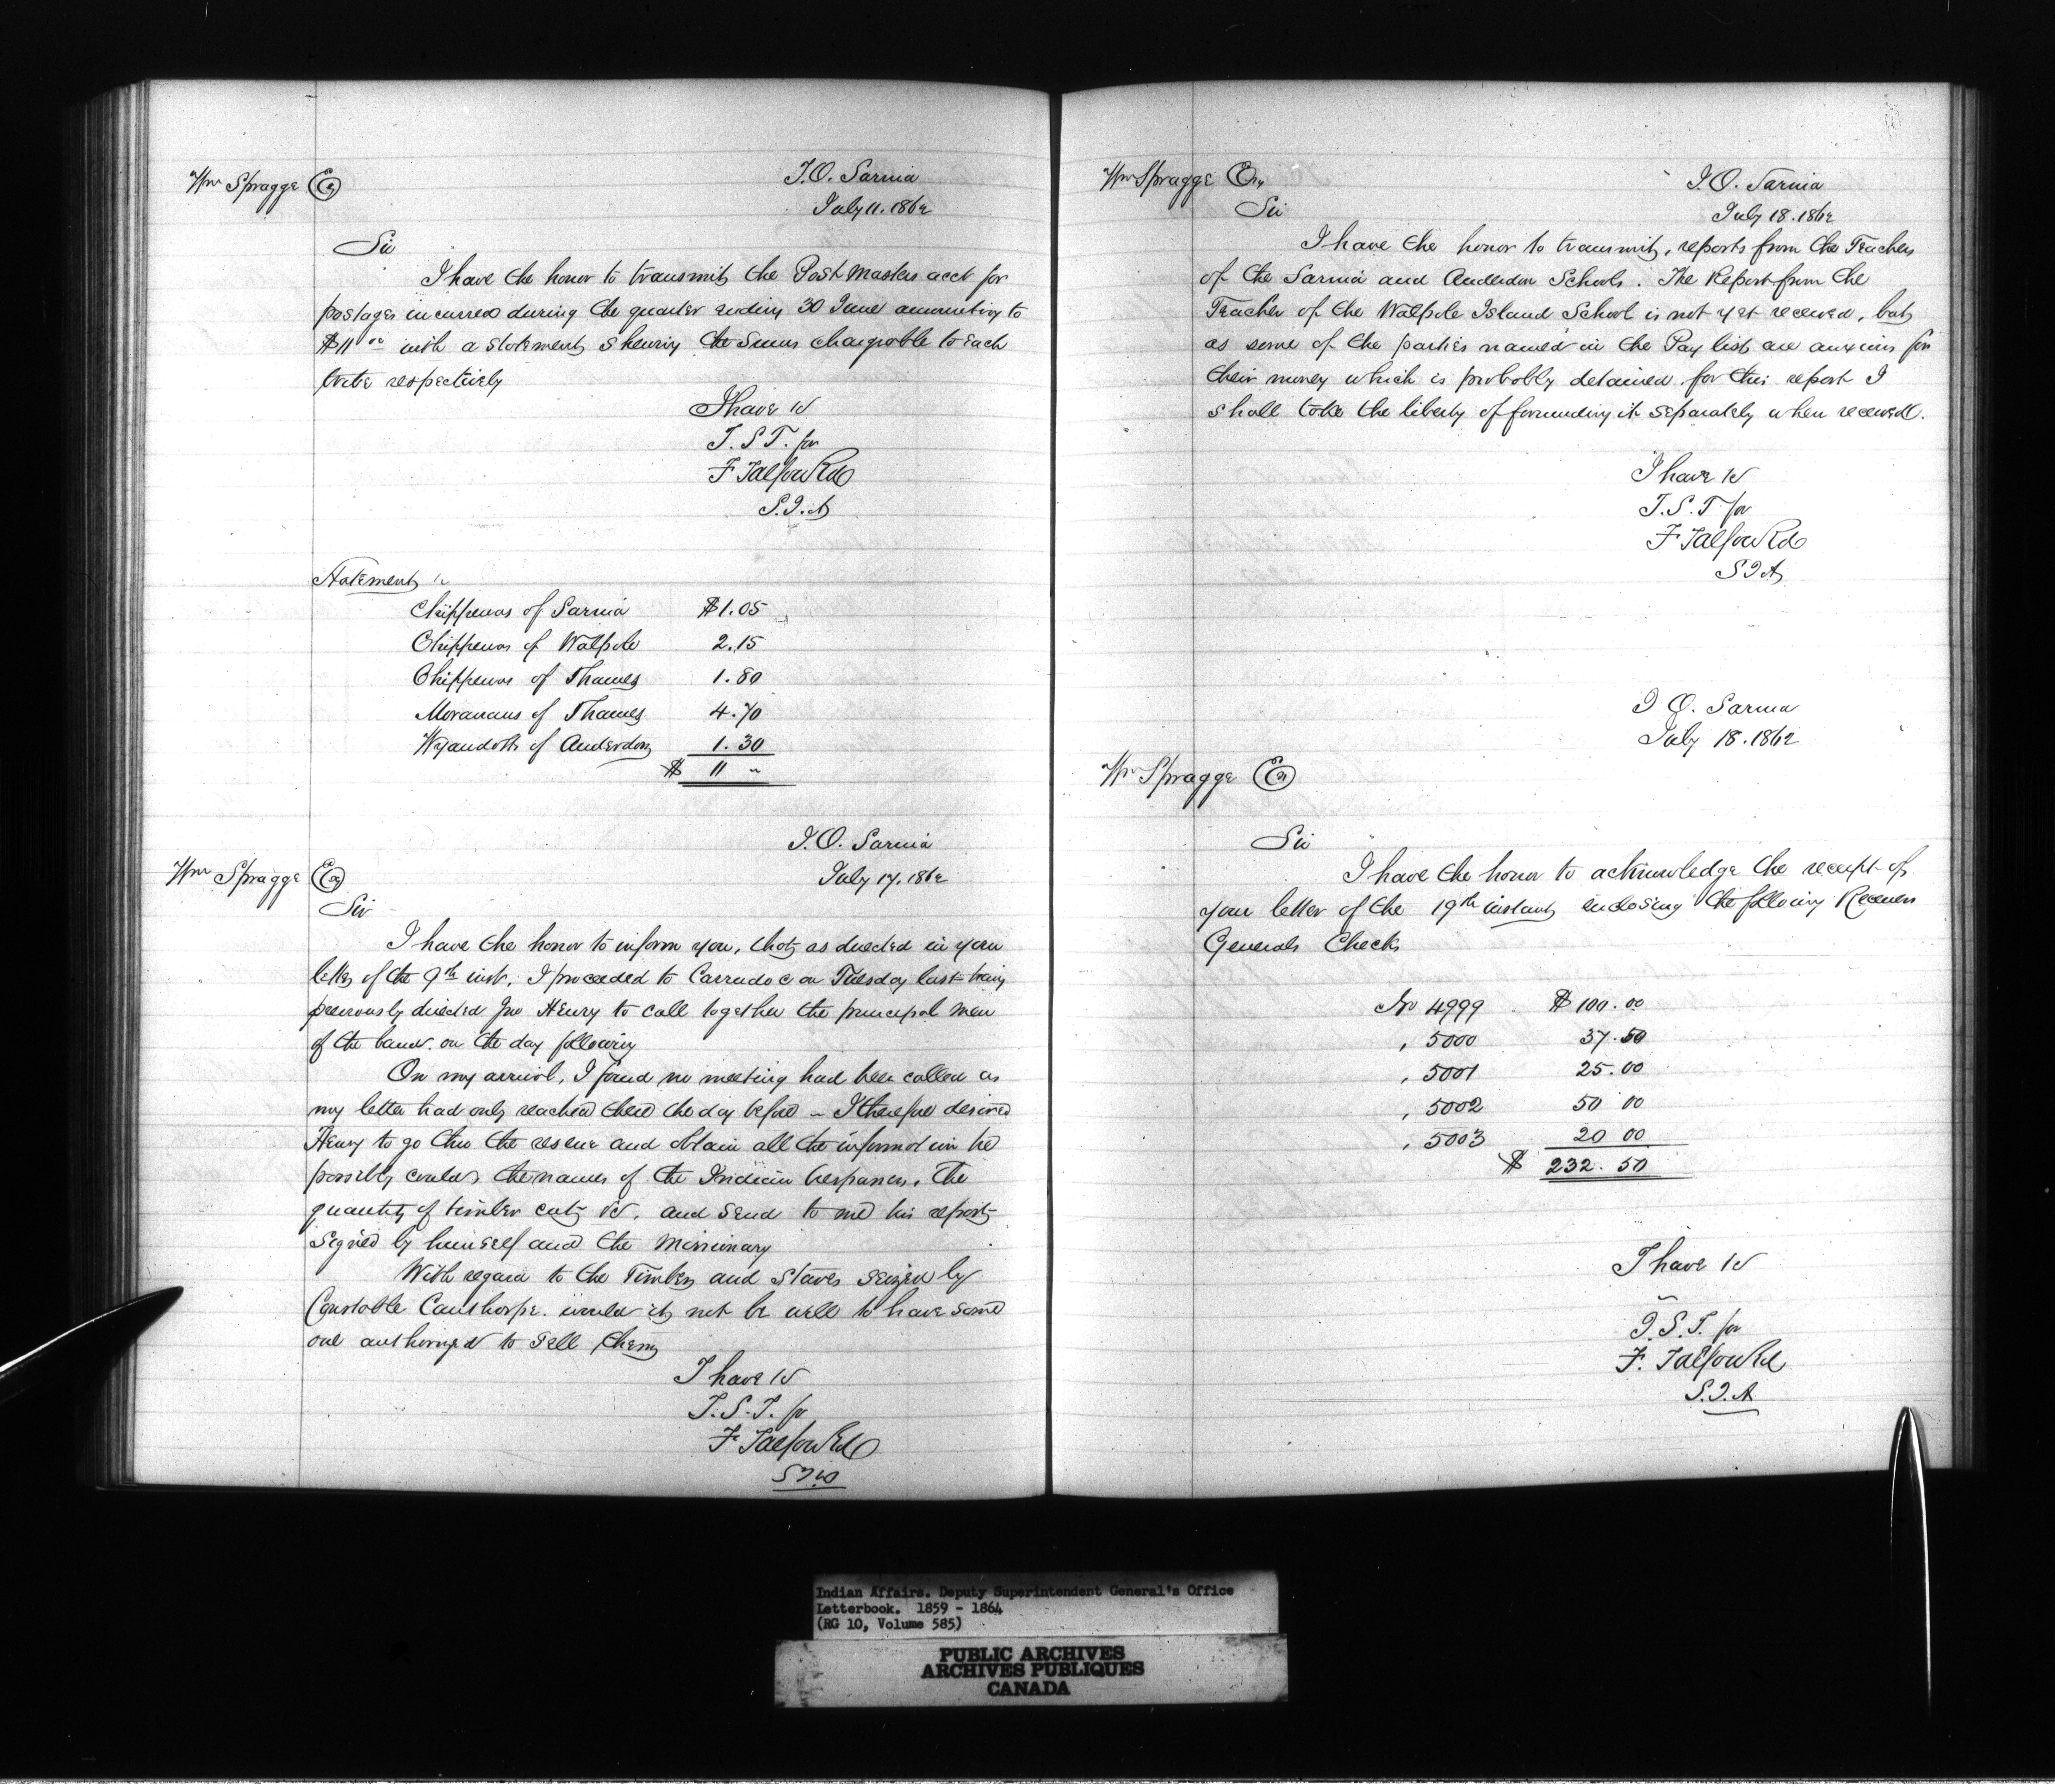 I.O. Sarnia
Wm Spragge Esq
July 11. 1862
Sir
I have the honor to transmit the Post Masters acct for
postages incurred during the quarter ending 30 June amounting to
$11 00 with a statement shewing the sums chargeable to each
tribe respectively
I have &c
T.S.T. for
F Talfourd
S.I.A
Statement
Chippewas of Sarnia $1.05
Chippewas of Walpole 2.15
Chippewas of Thames 1.80
Moravians of Thames 4.70
Wyandotts of Anderdon 1.30
$ 11 "
I.O. Sarnia
Wm Spragge Esq
July 17. 1862
Sir
I have the honor to inform you, that as directed in your
letter of the 9th inst. I proceeded to Carradoc on Tuesday last having
previously directed Jno Henry to call together the principal men
of the band. on the day following
On my arrival, I found no meeting had been called as
my letter had only reached there the day before – I therefore desired
Henry to go thro the reserve and obtain all the information he
possibly could, the names of the Indian trespassers, the
quantity of timber cut &c, and send to me his report
signed by himself and the Missionary
With regard to the Timber and Staves seized by
Constable Cauthorpe. would it not be well to have some
one authorized to sell them
I have &c
T.S.T. for
F Talfourd
S.I.A
Wm Spragge Esq
I.O. Sarnia
July 18. 1862
Sir
I have the honor to transmit, reports from the Teachers
of the Sarnia and Anderdon Schools. The Report from the
Teacher of the Walpole Island School is not yet received, but
as some of the parties named in the Pay list are anxious for
their money which is probably detained for this report I
shall take the liberty of forwarding it separately when received.
I have &c
T.S.T for
F Talfourd
S I A
I O. Sarnia
July 18. 1862
Wm Spragge Esq
Sir
I have the honor to acknowledge the receipt of
your letter of the 19th instant enclosing the following Receivers
Generals Checks
No 4999 $ 100.00
, 5000 37.50
, 5001 25.00
, 5002 50 00
, 5003 20 00
$ 232.50
I have &c
T.S.T. for
F. Talfourd
S.I.A
Indian Affairs. Deputy Superintendent General's Office
Letterbook. 1859 - 1864
(RG 10, Volume 585)
PUBLIC ARCHIVES
ARCHIVES PUBLIQUES
CANADA